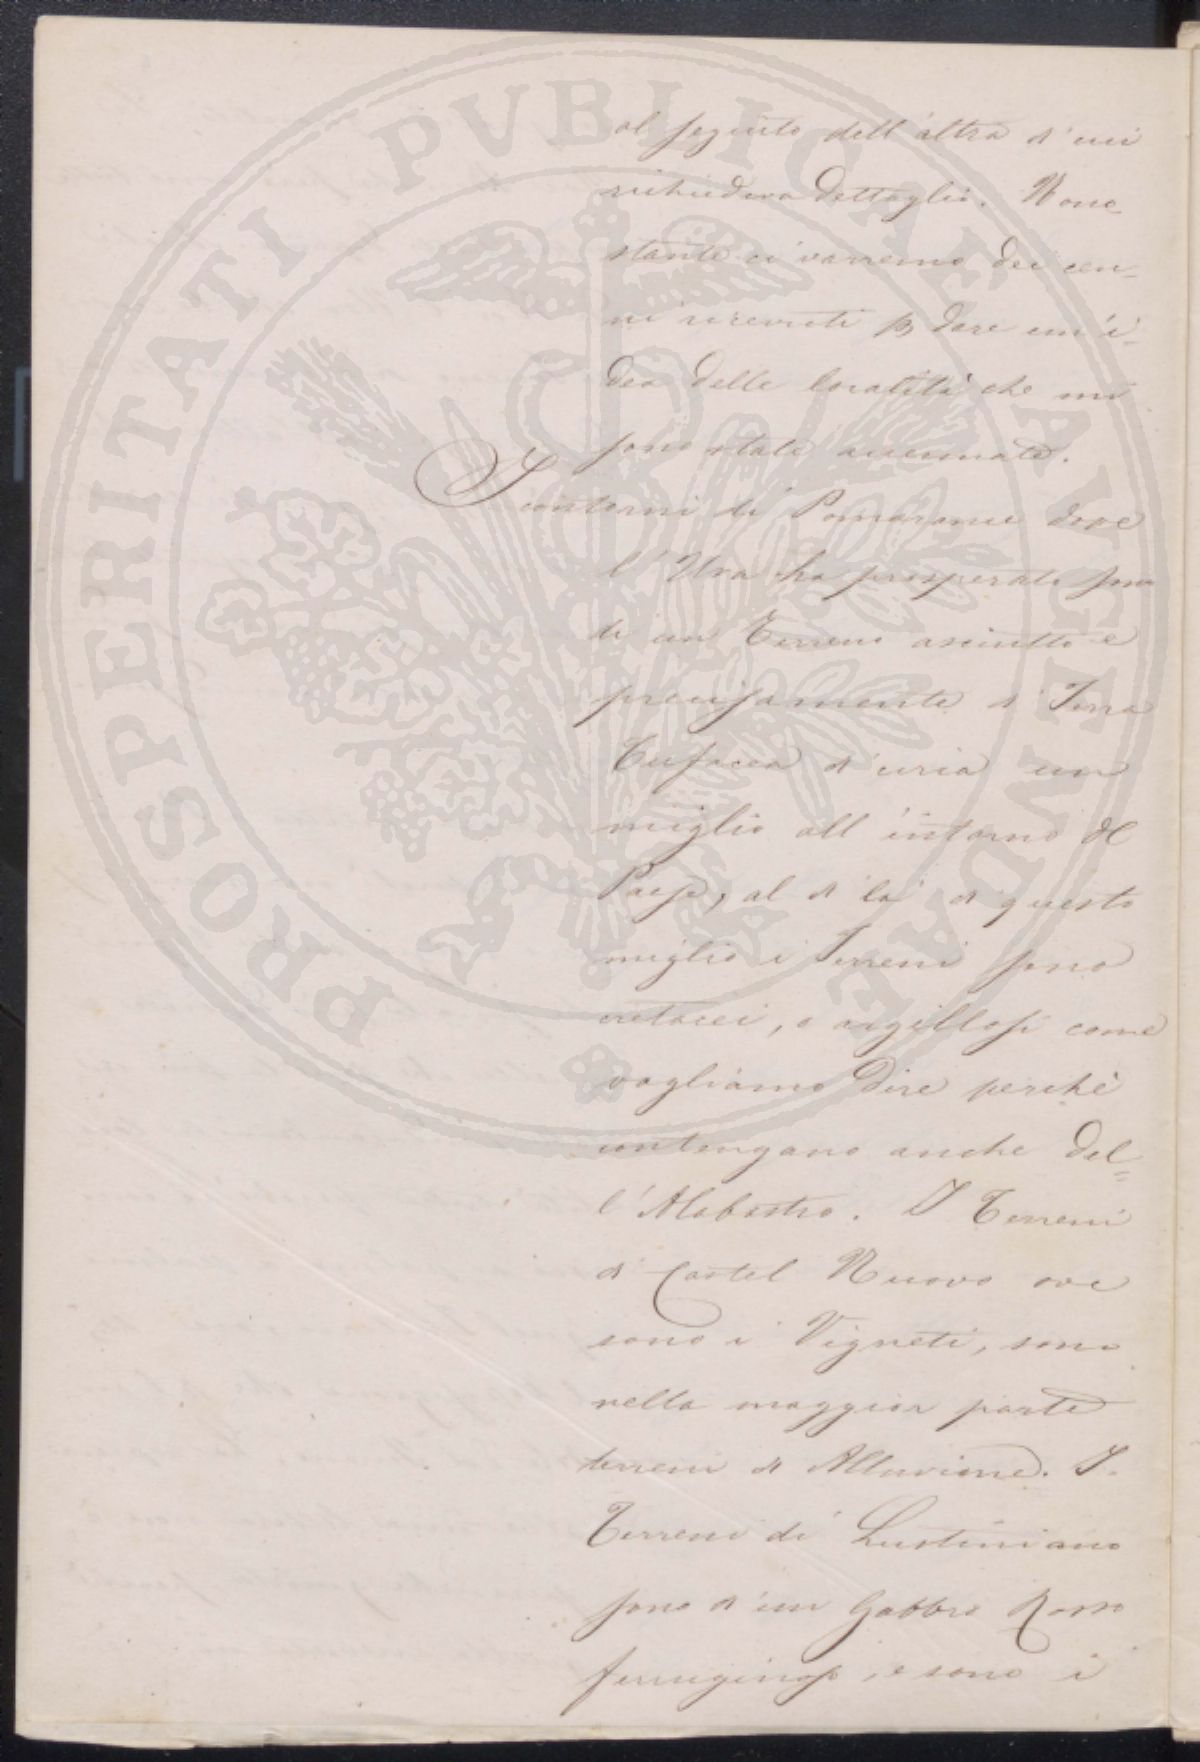 PROSPERITATI PVBLICAE AVGENDAE
al seguito dell'altra d'cui
richiedeva dettaglio. Nono
stante ci varremo dei cen=
ni ricevuti p dare un'i=
dea delle località che mi
sono state accennate.
I contorni di Pomarance dove
l'Uva ha prosperato sono
di un Terreno asciutto e
precisamente d' Terra
Tufacea d'circa un
miglio all'intorno del
Paese, al d'là d'questo
miglio i Terreni sono
cretacei, o argillosi come
vogliamo dire perchè
contengano anche del=
l'Alabastro. I Terreni
d' Castel Nuovo ove
sono i Vigneti, sono
nella maggior parte
terreni d' Alluvione. I
Terreni di Lustiniano
sono d'un Gabbro Rosso
ferruginoso, e sono i